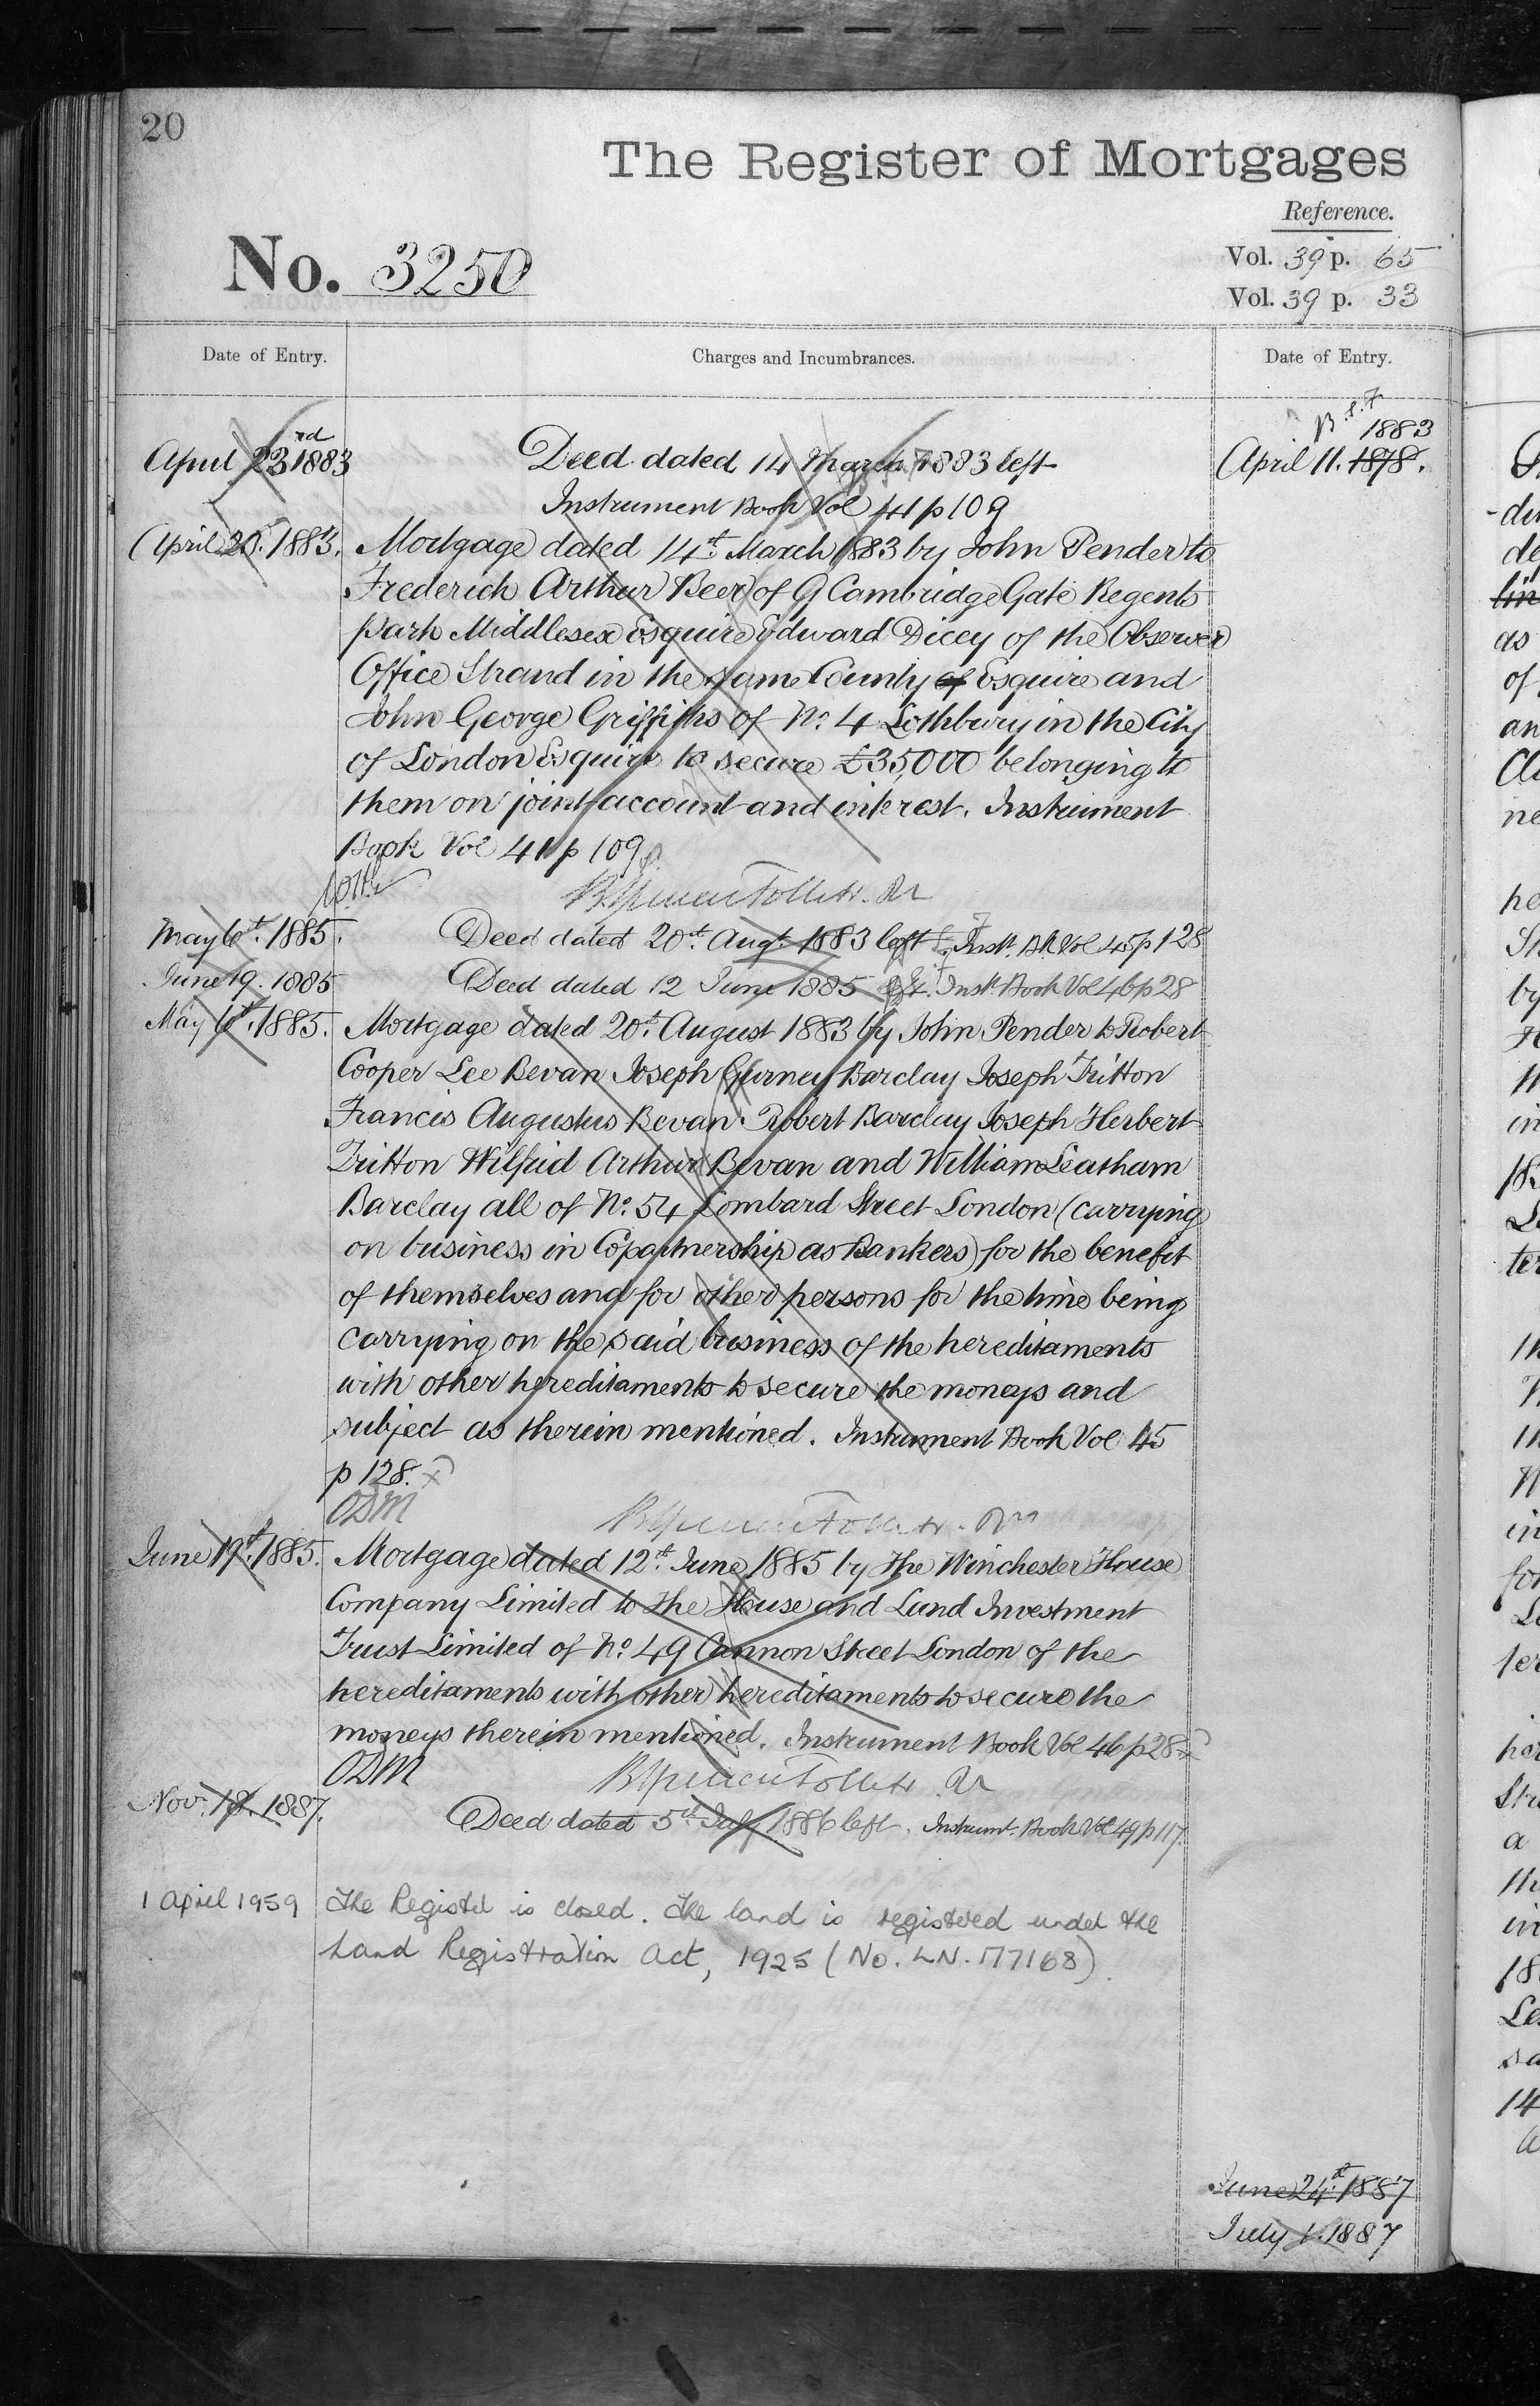 20
The Register of Mortgages
Reference.
No. 3250
Vol. 39 p. 65
Vol. 39 p. 33
Date of Entry.
Charges and Incumbrances.
Date of Entry.
B.S.F
1883
April 11. 1878.
April 23rd 1883
Deed dated 14 March 1883 left
Instrument Book Vol 41 p 109
April 25. 1883. Mortgage dated 14th March 1883 by John Pender to
Frederick Arthur Beer of 9 Cambridge Gate Regents
park Middlesex Esquire Edward Dicey of the Observer
Office Strand in the same County of Esquire and
John George Griffiths of No. 4 Lothbury in the City
of London Esquire to secure £35,000 belonging to
them on joint account and interest. Instrument
Book Vol 41 p 109
May 6th. 1885. Deed dated 20th. Augt. 1883 left Inst. Bk Vol 45 p 128
June 19. 1885 Deed dated 12 June 1885 left. Inst. Book Vol 46 p 28
May 6th. 1885. Mortgage dated 20th. August 1883 by John Pender to Robert
Cooper Lee Bevan Joseph Gurney Barclay Joseph Tritton
Francis Augustus Bevan Robert Barclay Joseph Herbert
Tritton Wilfrid Arthur Bevan and William Leatham
Barclay all of No. 54 Lombard Street London (carrying
on business in Copartnership as Bankers) for the benefit
of themselves and for other persons for the time being
carrying on the said business of the hereditaments
with other hereditaments to secure the moneys and
subject as therein mentioned. Instrument Book Vol 45
p 128.
ODM
June 19th. 1885. Mortgage dated 12th. June 1885 by The Winchester House
Company Limited to The House and Land Investment
Trust Limited of No. 49 Cannon Street London of the
hereditaments with other hereditaments to secure the
moneys therein mentioned. Instrument Book Vol 46 p 28
ODM
Nov. 18. 1887. Deed dated 5th July 1886 left. Instrumt. Book Vol 49 p 117.
1 April 1959 The Register is closed. The land is registered under the
Land Registration Act, 1925 (No. LN. 177168).
June 24th. 1887
July 1. 1887